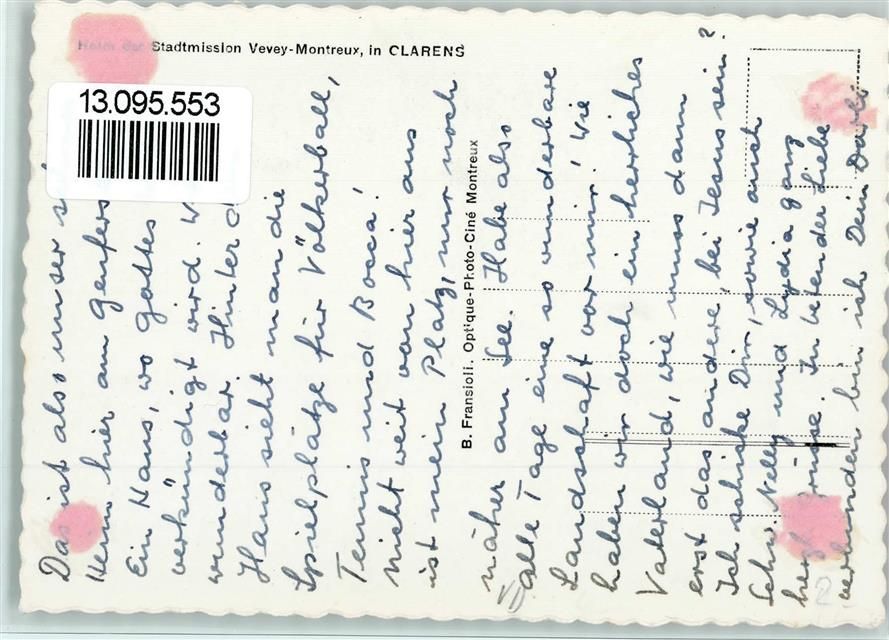 Heim der Stadtmission Vevey-Montreux, in CLARENS
13.095.553
B. Fransioli, Optique-Photo-Ciné Montreux
Das ist also unser
Heim hier am Genfers
Ein Haus, wo Gottes
verkündigt wird.
wunderbar. Hinter d
Haus sieht man die
Spielplätze für Völkerball,
Tennis und Bocca!
Nicht weit von hier aus
ist mein Platz, nur noch
näher am See. Habe also
alle Tage eine so wunderbare
Landschaft vor mir! Wie
haben wir doch ein herrliches
Vaterland, wie muss dann
erst das andere, bei Jesus sein?
Ich schicke Dir, sowie auch
Schw. Nelly und Lydia ganz
herzl. Grüsse. In betender Liebe
verbunden bin ich Dein
2